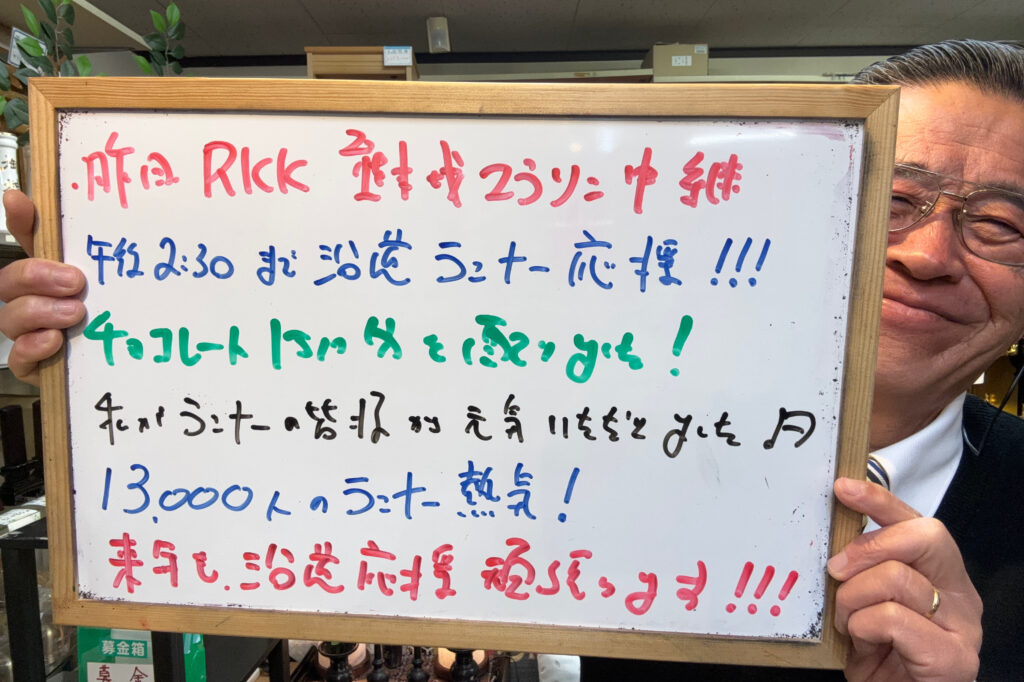 昨日 RKK 熊本城マラソン中継
午後2:30まで沿道ランナー応援!!!
チョコレート 配りました!
私がランナーの皆様から元気いただきました♬
13,000人のランナー熱気!
来年も、沿道応援頑張ります!!!
募金箱
募金